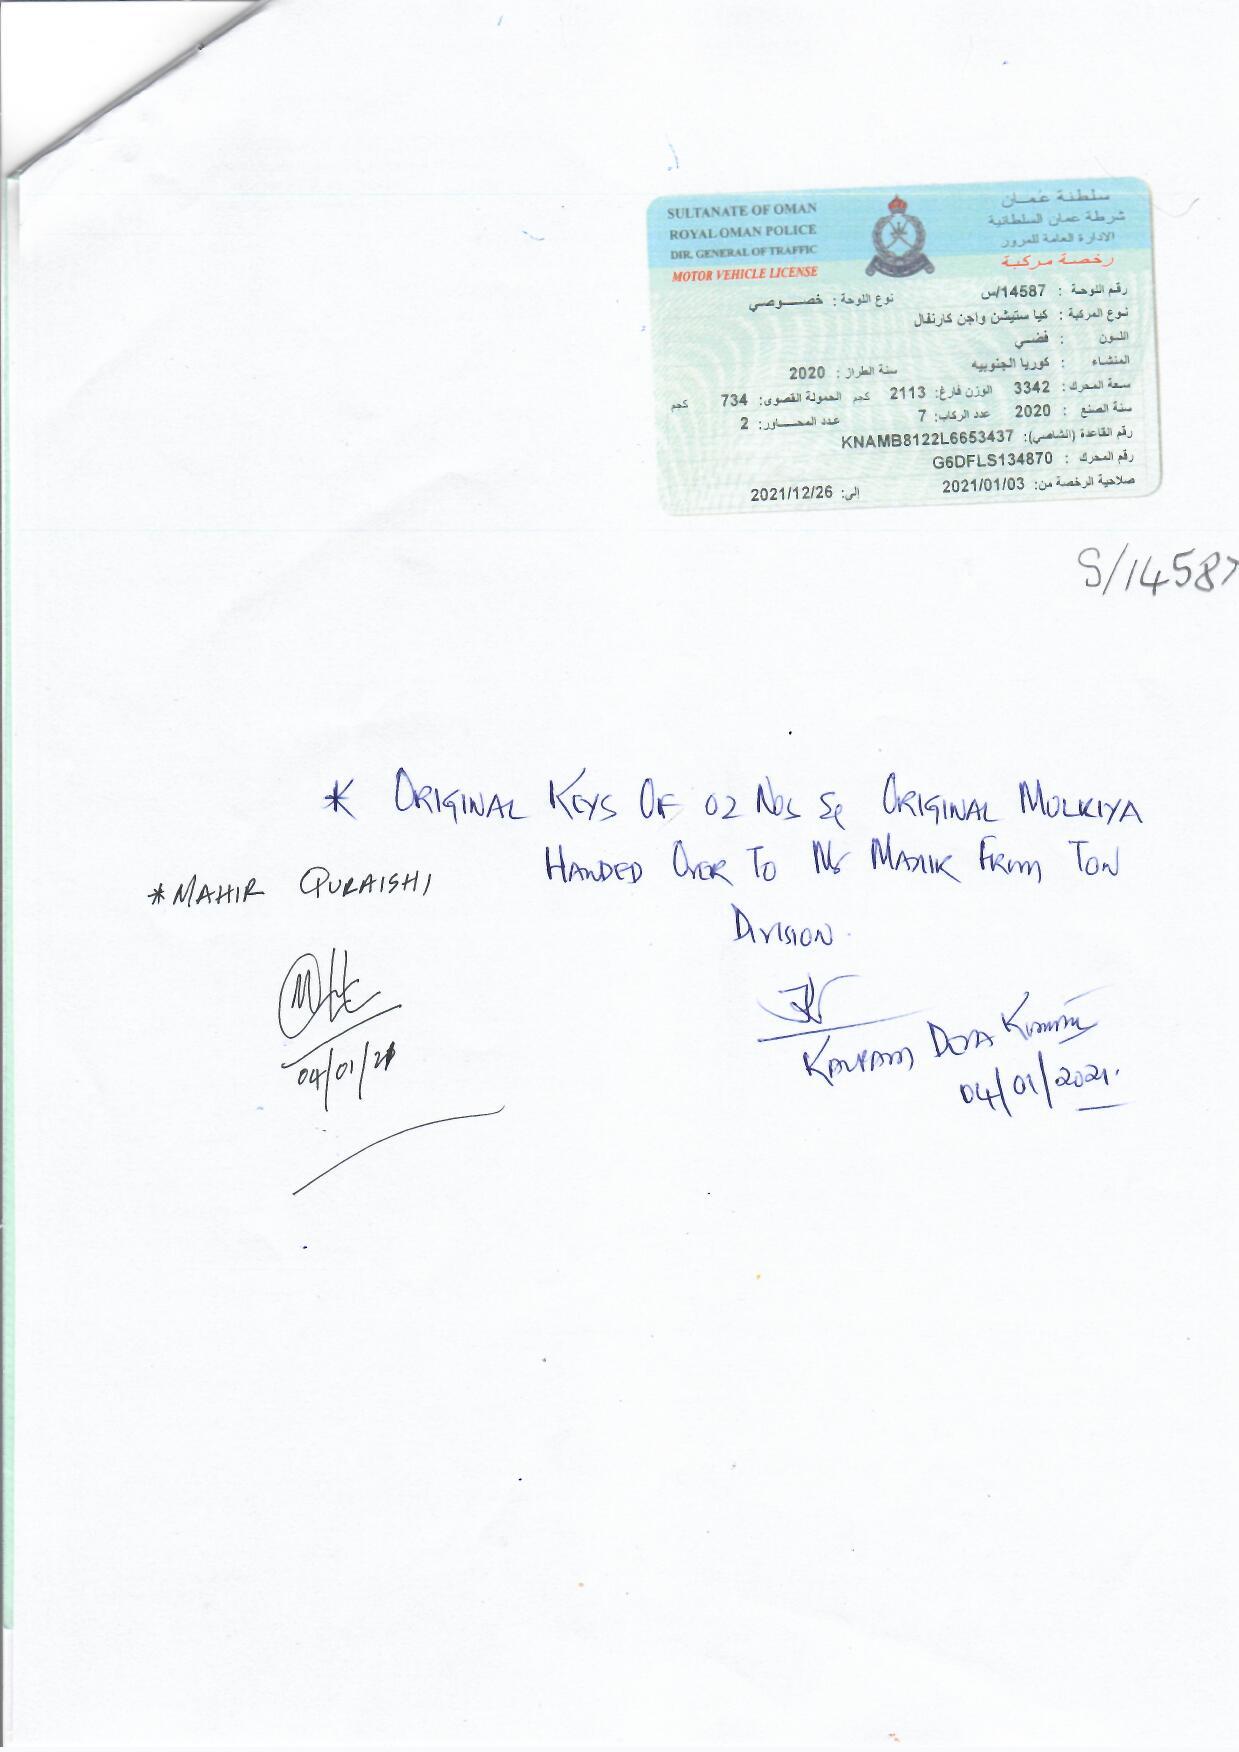 SULTANATE OF OMAN
ROYAL OMAN POLICE
DIR. GENERAL OF TRAFFIC
MOTOR VEHICLE LICENSE
سلطنة عُمـان
شرطة عمان السلطانية
الادارة العامة للمرور
رخصة مركبة
رقم اللوحة : 14587/س نوع اللوحة : خصــوصي
نوع المركبة : كيا ستيشن واجن كارنفال
اللـون : فضـي
المنشاء : كوريا الجنوبيه سنة الطراز : 2020
سعة المحرك : 3342 الوزن فارغ: 2113 كجم الحمولة القصوى: 734 كجم
سنة الصنع : 2020 عدد الركاب: 7 عدد المحـــاور: 2
رقم القاعدة (الشاصي): KNAMB8122L6653437
رقم المحرك : G6DFLS134870
صلاحية الرخصة من: 2021/01/03 إلى: 2021/12/26
S/14587
* ORIGINAL KEYS OF 02 NOS & ORIGINAL MULKIYA
HANDED OVER TO FROM TON
DIVISION.
* MAHIR QURAISHI
04/01/21
04/01/2021.